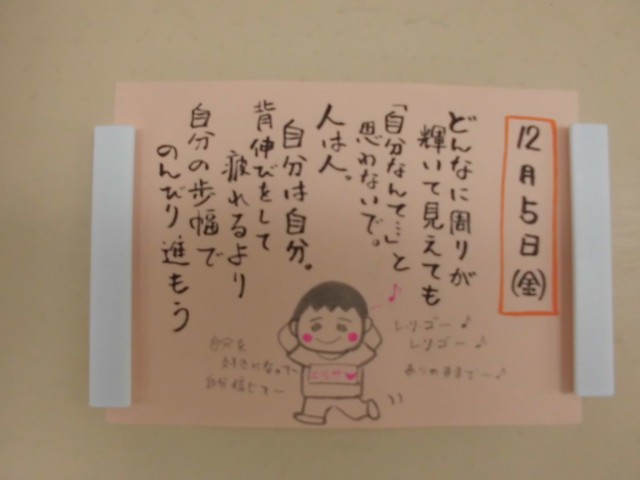 12月5日(金)
どんなに周りが
輝いて見えても
「自分なんて…」と
思わないで。
人は人。
自分は自分。
背伸びをして
疲れるより
自分の歩幅で
のんびり進もう
レリゴー♪
レリゴー♪
ありのままで〜♪
自分を
好きになって〜
自分信じて〜